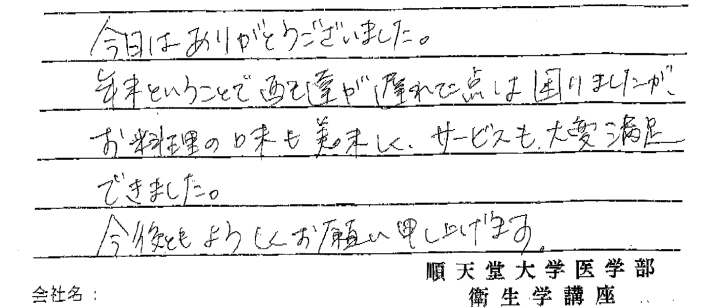 今日はありがとうございました。
年末ということで配達が遅れた点は困りましたが、
お料理の味も美味しく、サービスも大変満足
できました。
今後ともよろしくお願い申し上げます。
順天堂大学医学部
会社名：衛生学講座